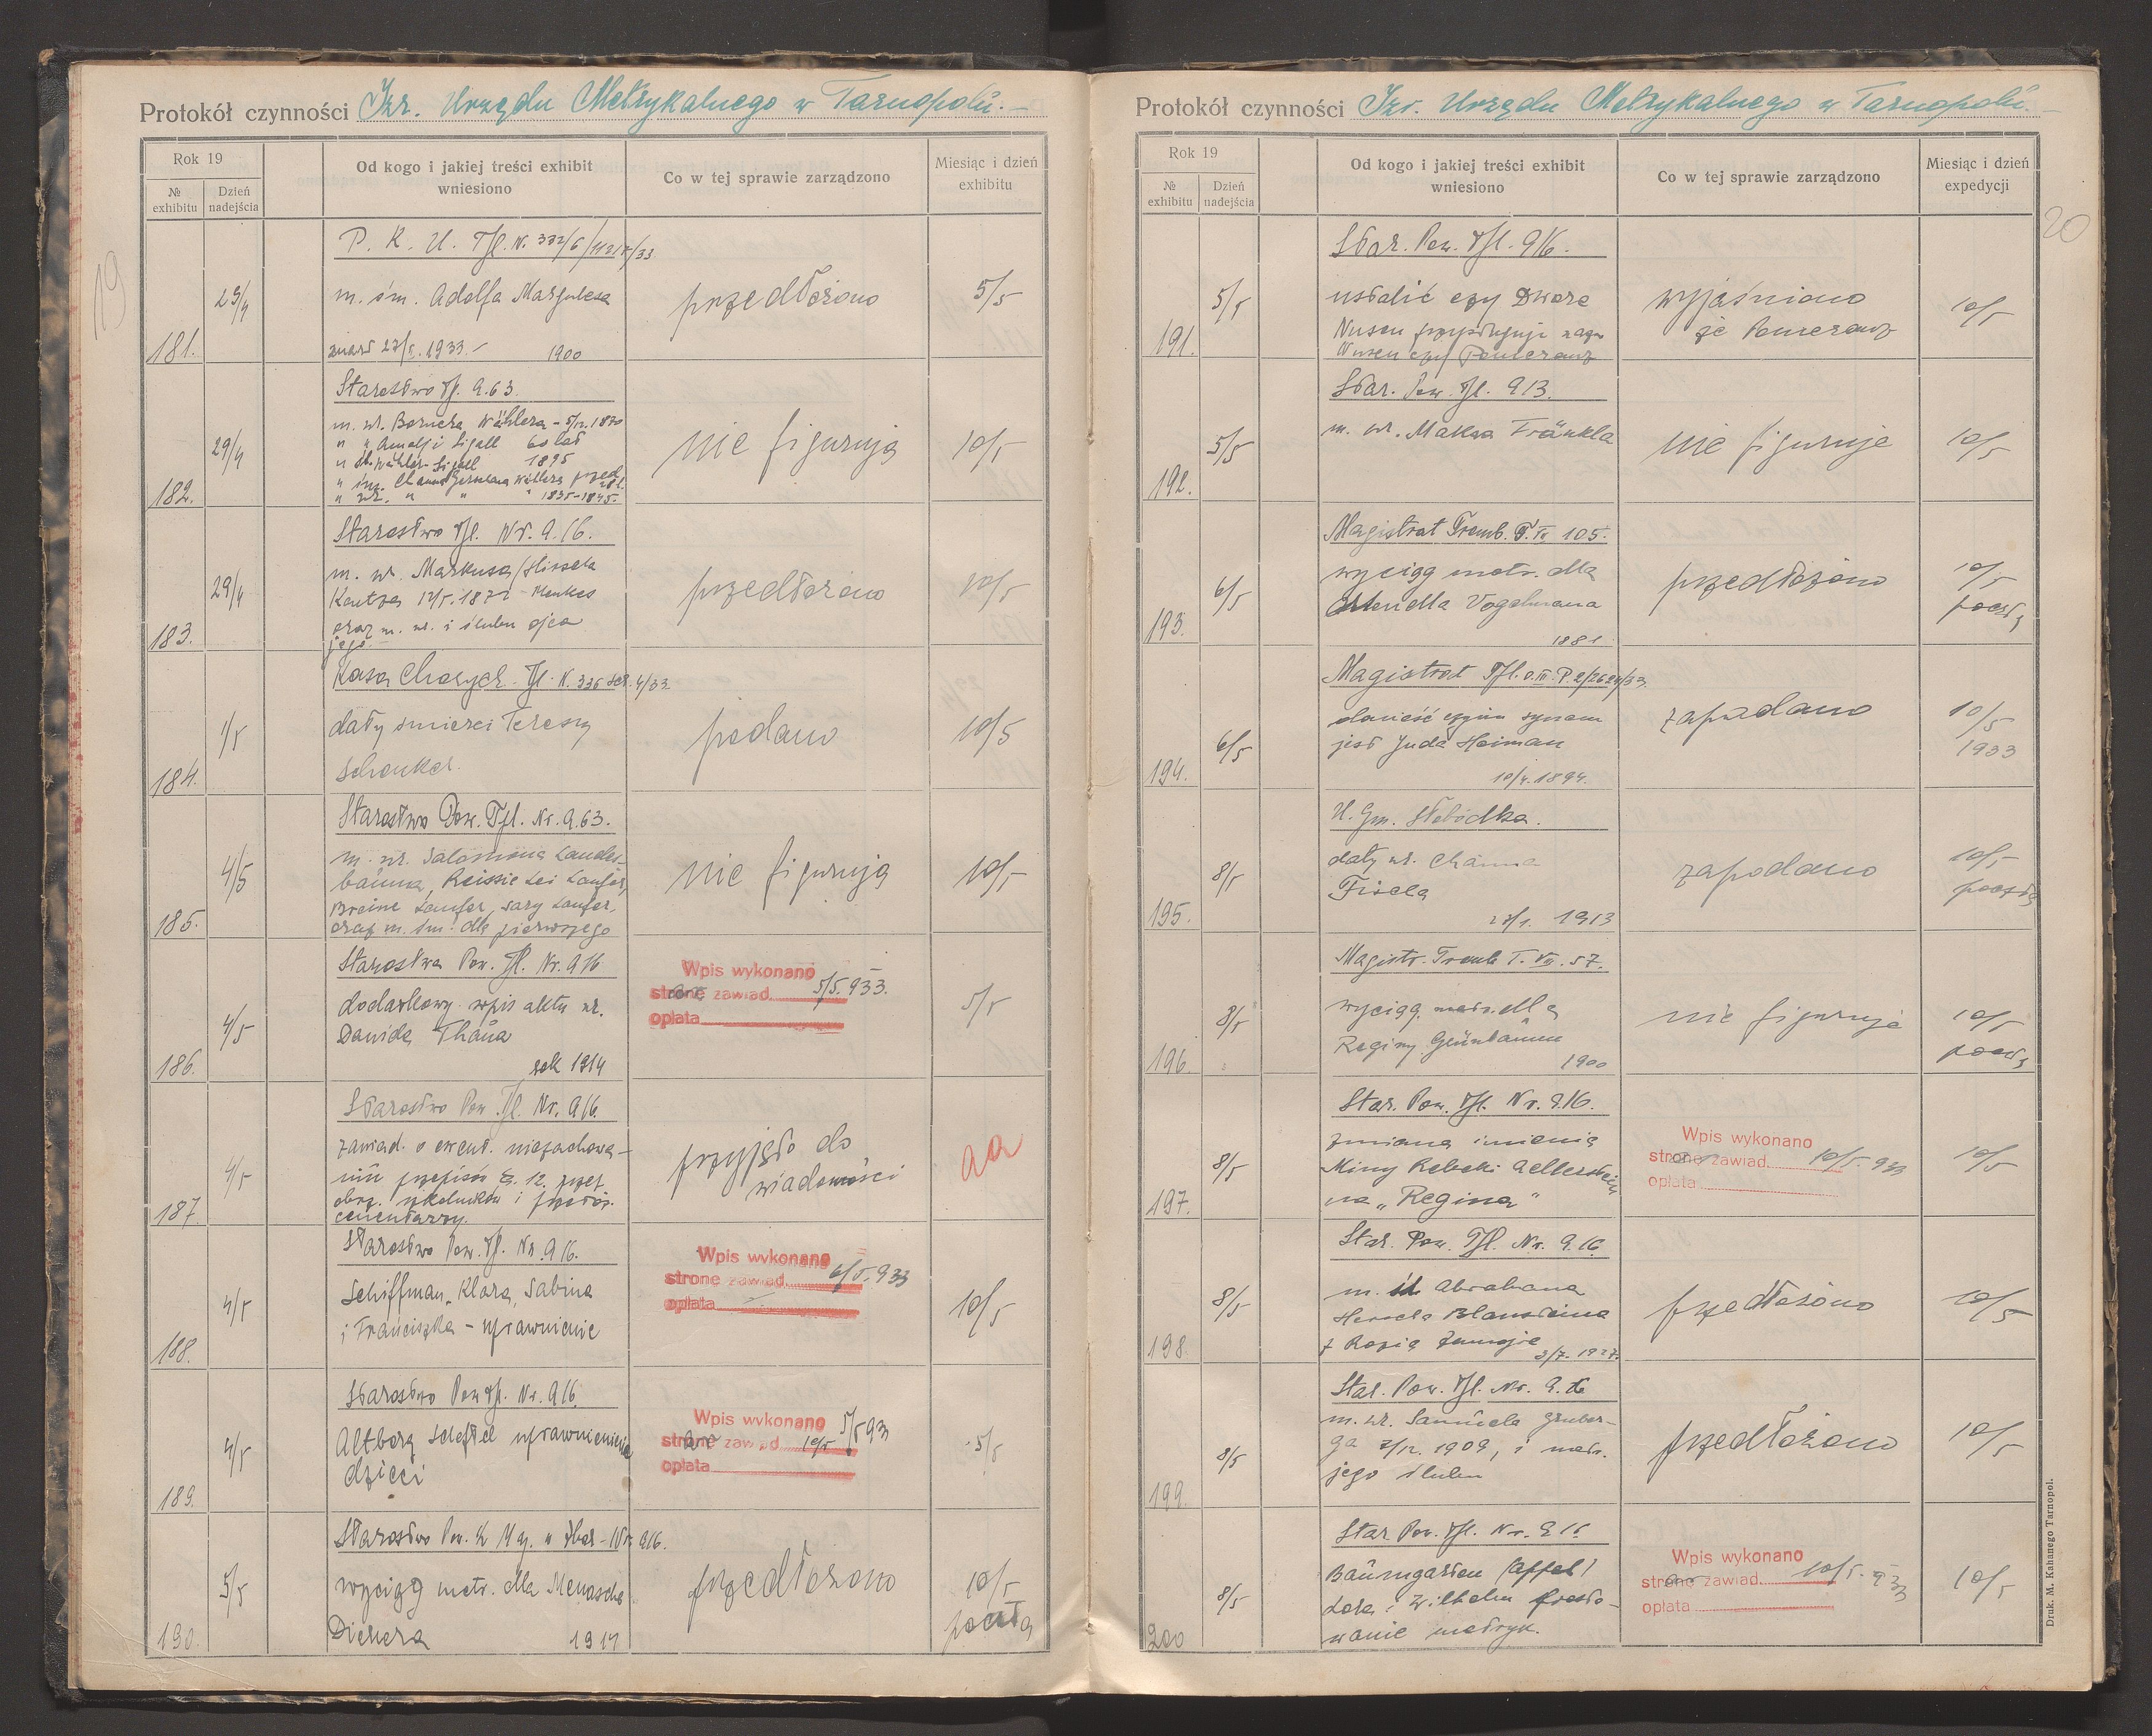 Protokół czynności Izr. Urzędu Metrykalnego w Tarnopolu.-
Rok 19
№ exhibitu
Dzień nadejścia
Od kogo i jakiej treści exhibit
wniesiono
Co w tej sprawie zarządzono
Miesiąc i dzień
exhibitu
19
P. K. U. Tfl. N. 332/6/
m. śm. Adolfa Margulesa
1933.- 1900
181. 29/4 przedłożono 5/5
Starostwo Tfl. 9.63.
m. ur. 1870
" " Amalji Sigall 60 lat
Sigall 1895
" " " 1835-1845.
182. 29/4 nie figurują 10/5
Starostwo Tfl. Nr. 9.16.
m. ur. Markusa
oraz m. ur. i ślubu ojca
jego.
183. 29/4 przedłożono 10/5
Kasa Chorych Tfl. N. 336 4/33
daty śmierci Teresy
Schenker.
184. 1/5 podano 10/5
Starostwo Pow. Tfl. Nr. 9.63.
m. ur. Salomona Landes-
bauma, Reissie Lei Laufer,
Breine Laufer, Sary Laufer,
oraz m. śm. dla pierwszego
185. 4/5 nie figurują 10/5
Starostwa Pow. Tfl. Nr. 9.16
dodatkowy wpis aktu ur.
Dawida Thaua
rok 1914
186. 4/5
Wpis wykonano
stronę zawiad. 5/5. 933.
opłata
5/5
Starostwo Pow. Tfl. Nr. 9/6.
zawiad. o ewent. niezachowa-
niu przepisów § 12. przez
cmentarzy.
187. 4/5 przyjęto do
wiadomości
aa
Starostwo Pow. Tfl. Nr. 9.16.
Schiffman, Klara, Sabina
i Franciszka - uprawnienie
188. 4/5
Wpis wykonano
stronę zawiad. 6/5. 933
opłata
10/5
Starostwo Pow. Tfl. Nr. 9.16.
uprawnienie
dzieci
189. 4/5
Wpis wykonano 5/5 93
stronę zawiad. 10/5
opłata
5/5
Starostwo Pow. Nr. 9.16.
wyciąg metr. dla Menascha
Dickera 1917
190. 5/5 przedłożono 10/5
pocztą
Protokół czynności Izr. Urzędu Metrykalnego w Tarnopolu.-
Rok 19
№ exhibitu
Dzień nadejścia
Od kogo i jakiej treści exhibit
wniesiono
Co w tej sprawie zarządzono
Miesiąc i dzień
expedycji
20
Star. Pow. Tfl. 9/6.
ustalić czy
Nusen przysługuje
Nusen czy Pomeranz
191. 5/5 wyjaśniono
że Pomeranz
10/5
Star. Pow. Tfl. 9/3.
m. ur. Maksa Fränkla
192. 5/5 nie figuruje 10/5
Magistrat Tremb. 105.
wyciąg metr. dla
Mendla Vogelmana
1881
193. 6/5 przedłożono 10/5
pocztą
Magistrat Tfl.
donieść czyim synem
jest Juda Heiman
1894.
194. 6/5 zapodano 10/5
1933
U. Gm. Słobódka.
daty ur. Chaima
Fisela
1913
195. 8/5 zapodano 10/5
pocztą
Magistr. Tremb. T. VII. 57.
wyciąg metr. dla
Reginy Grünbaum
1900
196. 8/5 nie figuruje 10/5
pocztą
Star. Pow. Tfl. Nr. 9.16.
zmiana imienia
Miny Rebeki
na „Regina"
197. 8/5
Wpis wykonano
stronę zawiad. 10/5. 933
opłata
10/5
Star. Pow. Tfl. Nr. 9.16.
m. śl. Abrahama
Herscha Blausteina
z Rozią 3/7. 1927.
198. 8/5 przedłożono 10/5
Star. Pow. Tfl. Nr. 9.16
m. ur. Samuela Gruber-
ga 7/12. 1909, i metr.
jego ślubu
199. 8/5 przedłożono 10/5
Star. Pow. Tfl. Nr. 9.16
Baumgarten (Appel)
Lora i Wilhelm prosto-
wanie metryk.
200 8/5
Wpis wykonano
stronę zawiad. 10/5. 933
opłata
10/5
Druk. M. Kahanego Tarnopol.